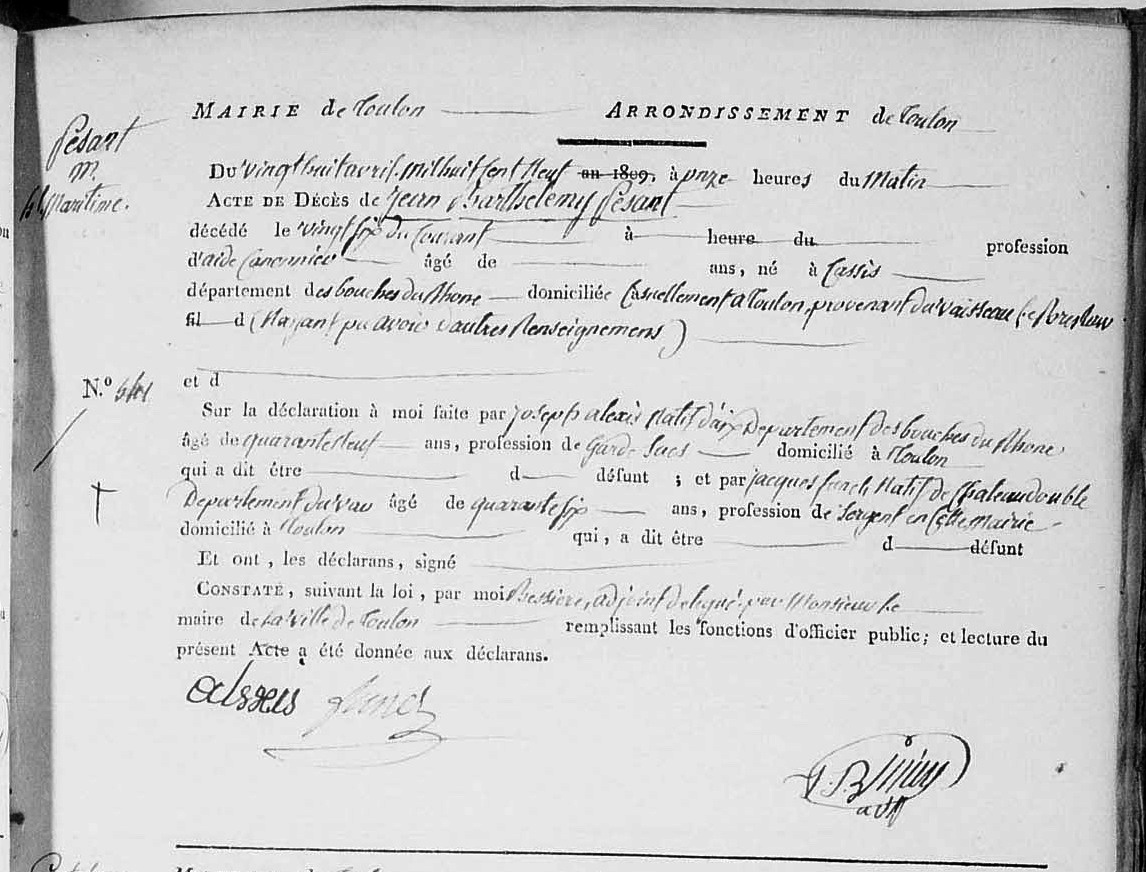 MAIRIE de Toulon ARRONDISSEMENT de Toulon
Pesant
m.
Maritime.
Du vingt huit avril mil huit cent Neuf an 1809, à onze heures du Matin
ACTE DE DÉCÈS de Jean Barthelemy Pesant
décédé le vingt six du Courant à heure du profession
d'aide Canonnier âgé de ans, né à Cassis
département des bouches du Rhone domiciliée Casuellement a Toulon, provenant du vaisseau le
fil d (Nayant pu avoir d'autres Renseignemens)
N.º
et d
Sur la déclaration à moi faite par joseph alexis Natif d'aix Departement des bouches du Rhone
âgé de quarante Neuf ans, profession de Garde Sacs domicilié à Toulon
qui a dit être d défunt ; et par jacques Natif de Chateaudouble
Departement du var âgé de quarante six ans, profession de Sergent en Cette Mairie
domicilié à Toulon qui, a dit être d défunt
Et ont, les déclarans, signé
CONSTATÉ, suivant la loi, par moi Bessiere, adjoint delegué par Monsieur Le
maire de La ville de Toulon remplissant les fonctions d'officier public; et lecture du
présent Acte a été donnée aux déclarans.